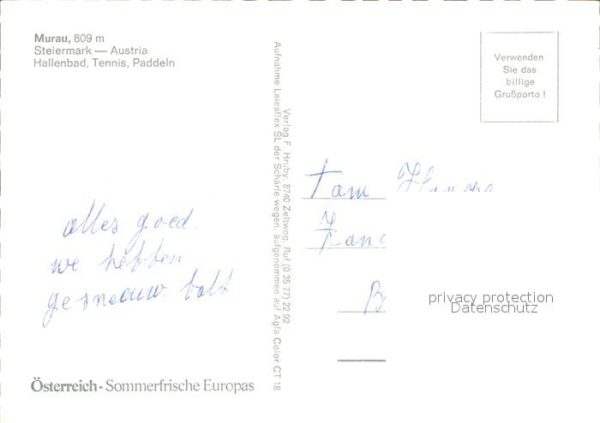 Murau, 809 m
Steiermark — Austria
Hallenbad, Tennis, Paddeln
alles goed.
we hebben
Österreich - Sommerfrische Europas
Verlag F. Hruby, 8740 Zeltweg, Ruf (0 35 77) 22 92
Aufnahme Leicaflex SL der Schärfe wegen, aufgenommen auf Agfa Color CT 18
Verwenden
Sie das
billige
Grußporto !
Fam
B
privacy protection
Datenschutz